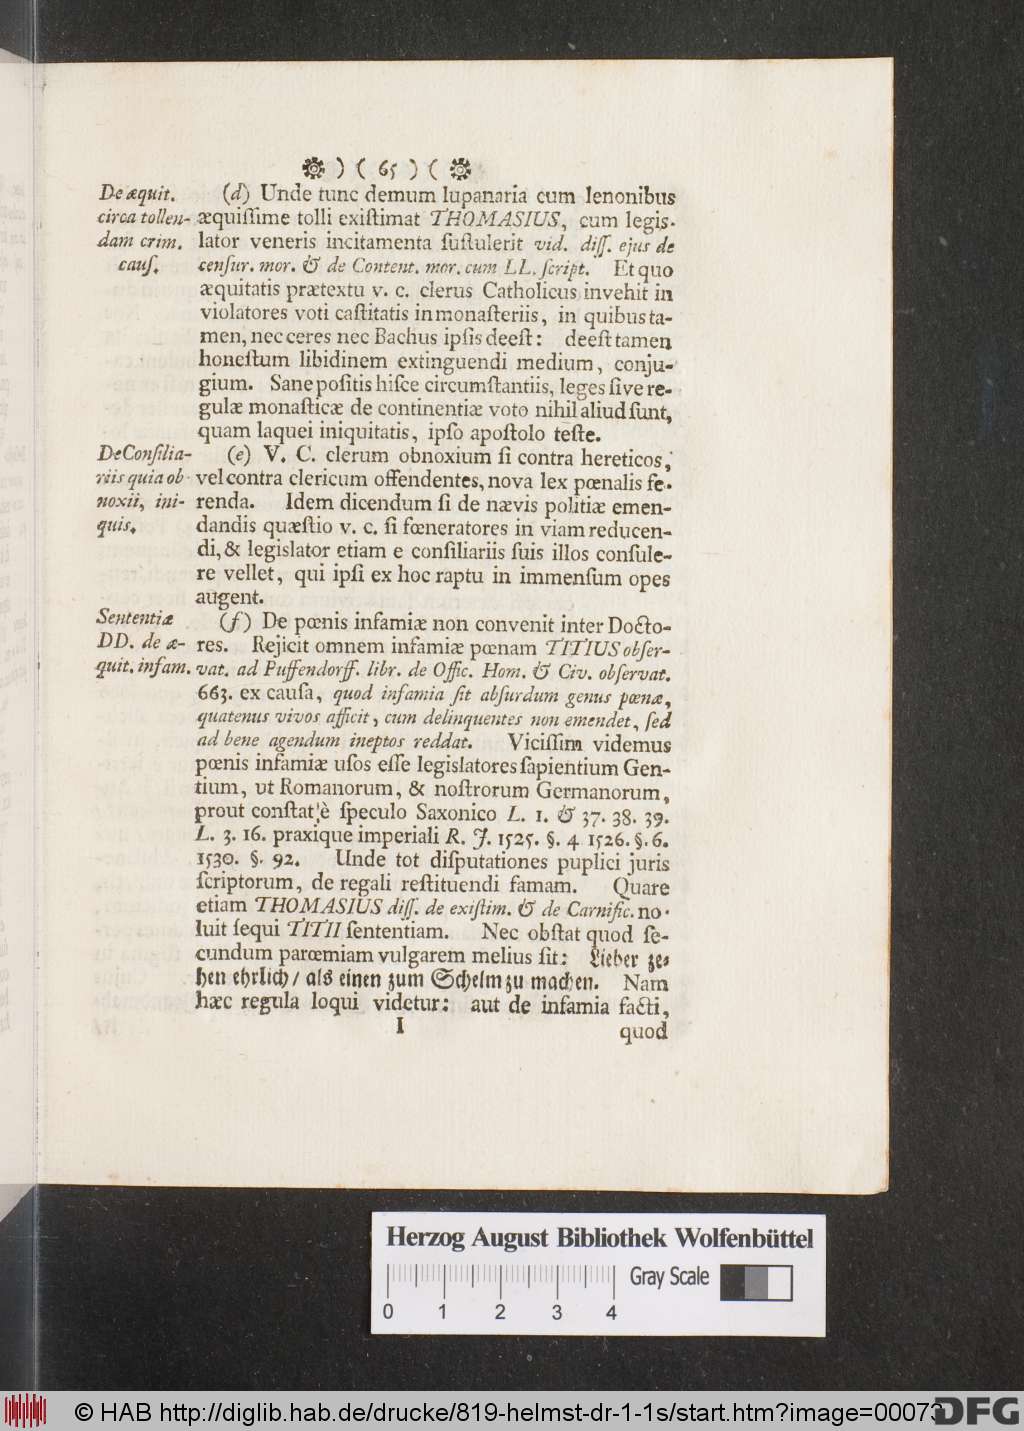 ❁ ) ( 65 ) ( ❁
De æquit.
circa tollen-
dam crim.
cauſ.
(d) Unde tunc demum lupanaria cum lenonibus
æquiſſime tolli exiſtimat THOMASIUS, cum legis-
lator veneris incitamenta ſuſtulerit vid. diſſ. ejus de
cenſur. mor. & de Content. mor. cum LL. ſcript. Et quo
æquitatis prætextu v. c. clerus Catholicus invehit in
violatores voti caſtitatis in monaſteriis, in quibus ta-
men, nec ceres nec Bachus ipſis deeſt: deeſt tamen
honeſtum libidinem extinguendi medium, conju-
gium. Sane poſitis hiſce circumſtantiis, leges ſive re-
gulæ monaſticæ de continentiæ voto nihil aliud ſunt,
quam laquei iniquitatis, ipſo apoſtolo teſte.
De Conſilia-
riis quia ob-
noxii, ini-
quis.
(e) V. C. clerum obnoxium ſi contra hereticos,
vel contra clericum offendentes, nova lex pœnalis fe-
renda. Idem dicendum ſi de nævis politiæ emen-
dandis quæſtio v. c. ſi fœneratores in viam reducen-
di, & legislator etiam e conſiliariis ſuis illos conſule-
re vellet, qui ipſi ex hoc raptu in immenſum opes
augent.
Sententiæ
DD. de æ-
quit. infam.
(f) De pœnis infamiæ non convenit inter Docto-
res. Rejicit omnem infamiæ pœnam TITIUS obſer-
vat. ad Puffendorff. libr. de Offic. Hom. & Civ. obſervat.
663. ex cauſa, quod infamia ſit abſurdum genus pœnæ,
quatenus vivos afficit, cum delinquentes non emendet, ſed
ad bene agendum ineptos reddat. Viciſſim videmus
pœnis infamiæ uſos eſſe legislatores ſapientium Gen-
tium, ut Romanorum, & noſtrorum Germanorum,
prout conſtat è ſpeculo Saxonico L. 1. & 37. 38. 39.
L. 3. 16. praxique imperiali R. J. 1525. §. 4 1526. §. 6.
1530. §. 92. Unde tot diſputationes puplici juris
ſcriptorum, de regali reſtituendi famam. Quare
etiam THOMASIUS diſſ. de exiſtim. & de Carnific. no-
luit ſequi TITII ſententiam. Nec obſtat quod ſe-
cundum parœmiam vulgarem melius ſit: Lieber ze-
hen ehrlich/ als einen zum Schelm zu machen. Nam
hæc regula loqui videtur: aut de infamia facti,
I
quod
Herzog August Bibliothek Wolfenbüttel
Gray Scale
0 1 2 3 4
© HAB http://diglib.hab.de/drucke/819-helmst-dr-1-1s/start.htm?image=00073
DFG